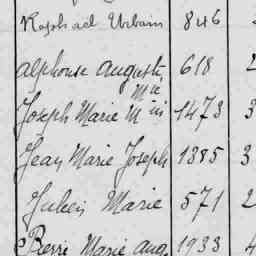 Raphael Urbain 846 2
Alphonse Auguste, 618 2
Joseph Marie M in Mce 1473 3
Jean Marie Joseph 1385 3
Julien Marie 571 2
Pierre Marie Aug. 1933 4